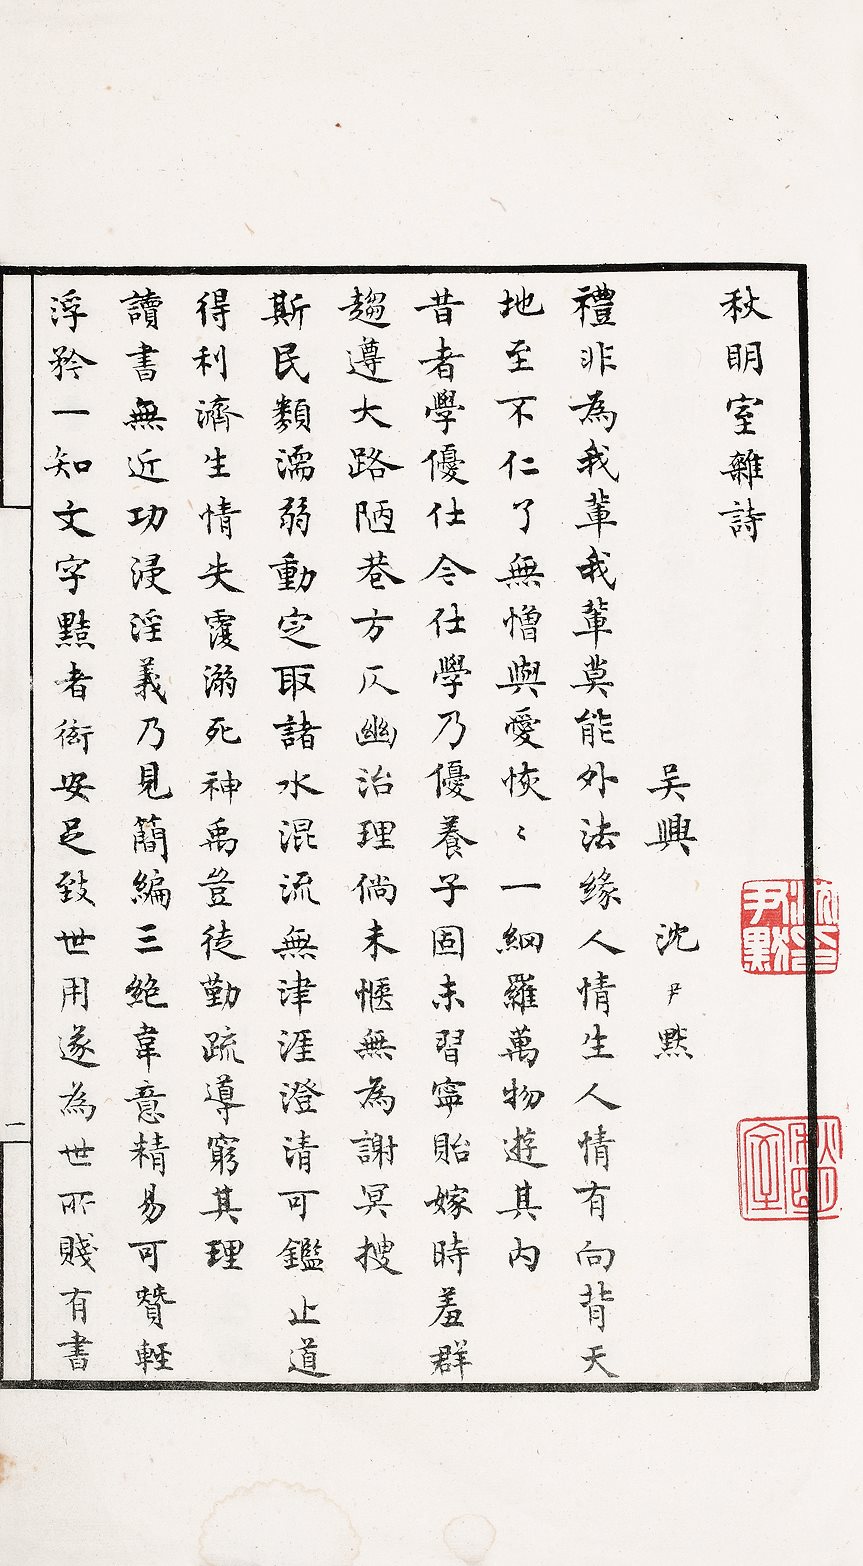 秋明室雜詩
吳興 沈尹默
禮非為我輩我輩莫能外法緣人情生人情有向背天
地至不仁了無憎與愛恢〻一網羅萬物遊其内
昔者學優仕今仕學乃優養子固未習寧貽嫁時羞群
趨遵大路陋巷方仄幽治理倘未愜無為謝冥搜
斯民類濡弱動定取諸水混流無津涯澄清可鑑止道
得利濟生情失覆溺死神禹豈徒勤疏導窮其理
讀書無近功浸淫義乃見簡編三絶韋意精易可贊輕
浮矜一知文字黠者衒安足致世用遂為世所賤有書
一
沈尹默
秋明室